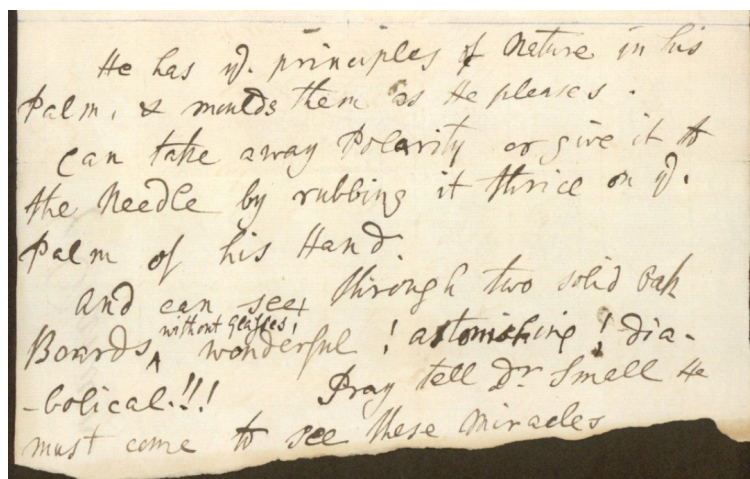 He has yᵉ. principles of Nature in his
Palm, & moulds them as He pleases.
Can take away Polarity or give it to
the Needle by rubbing it thrice on yᵉ.
Palm of his Hand.
And can see through two solid Oak
Boards without Glasses! wonderful! astonishing! dia-
-bolical.!!! Pray tell Dr Small He
must come to see these Miracles